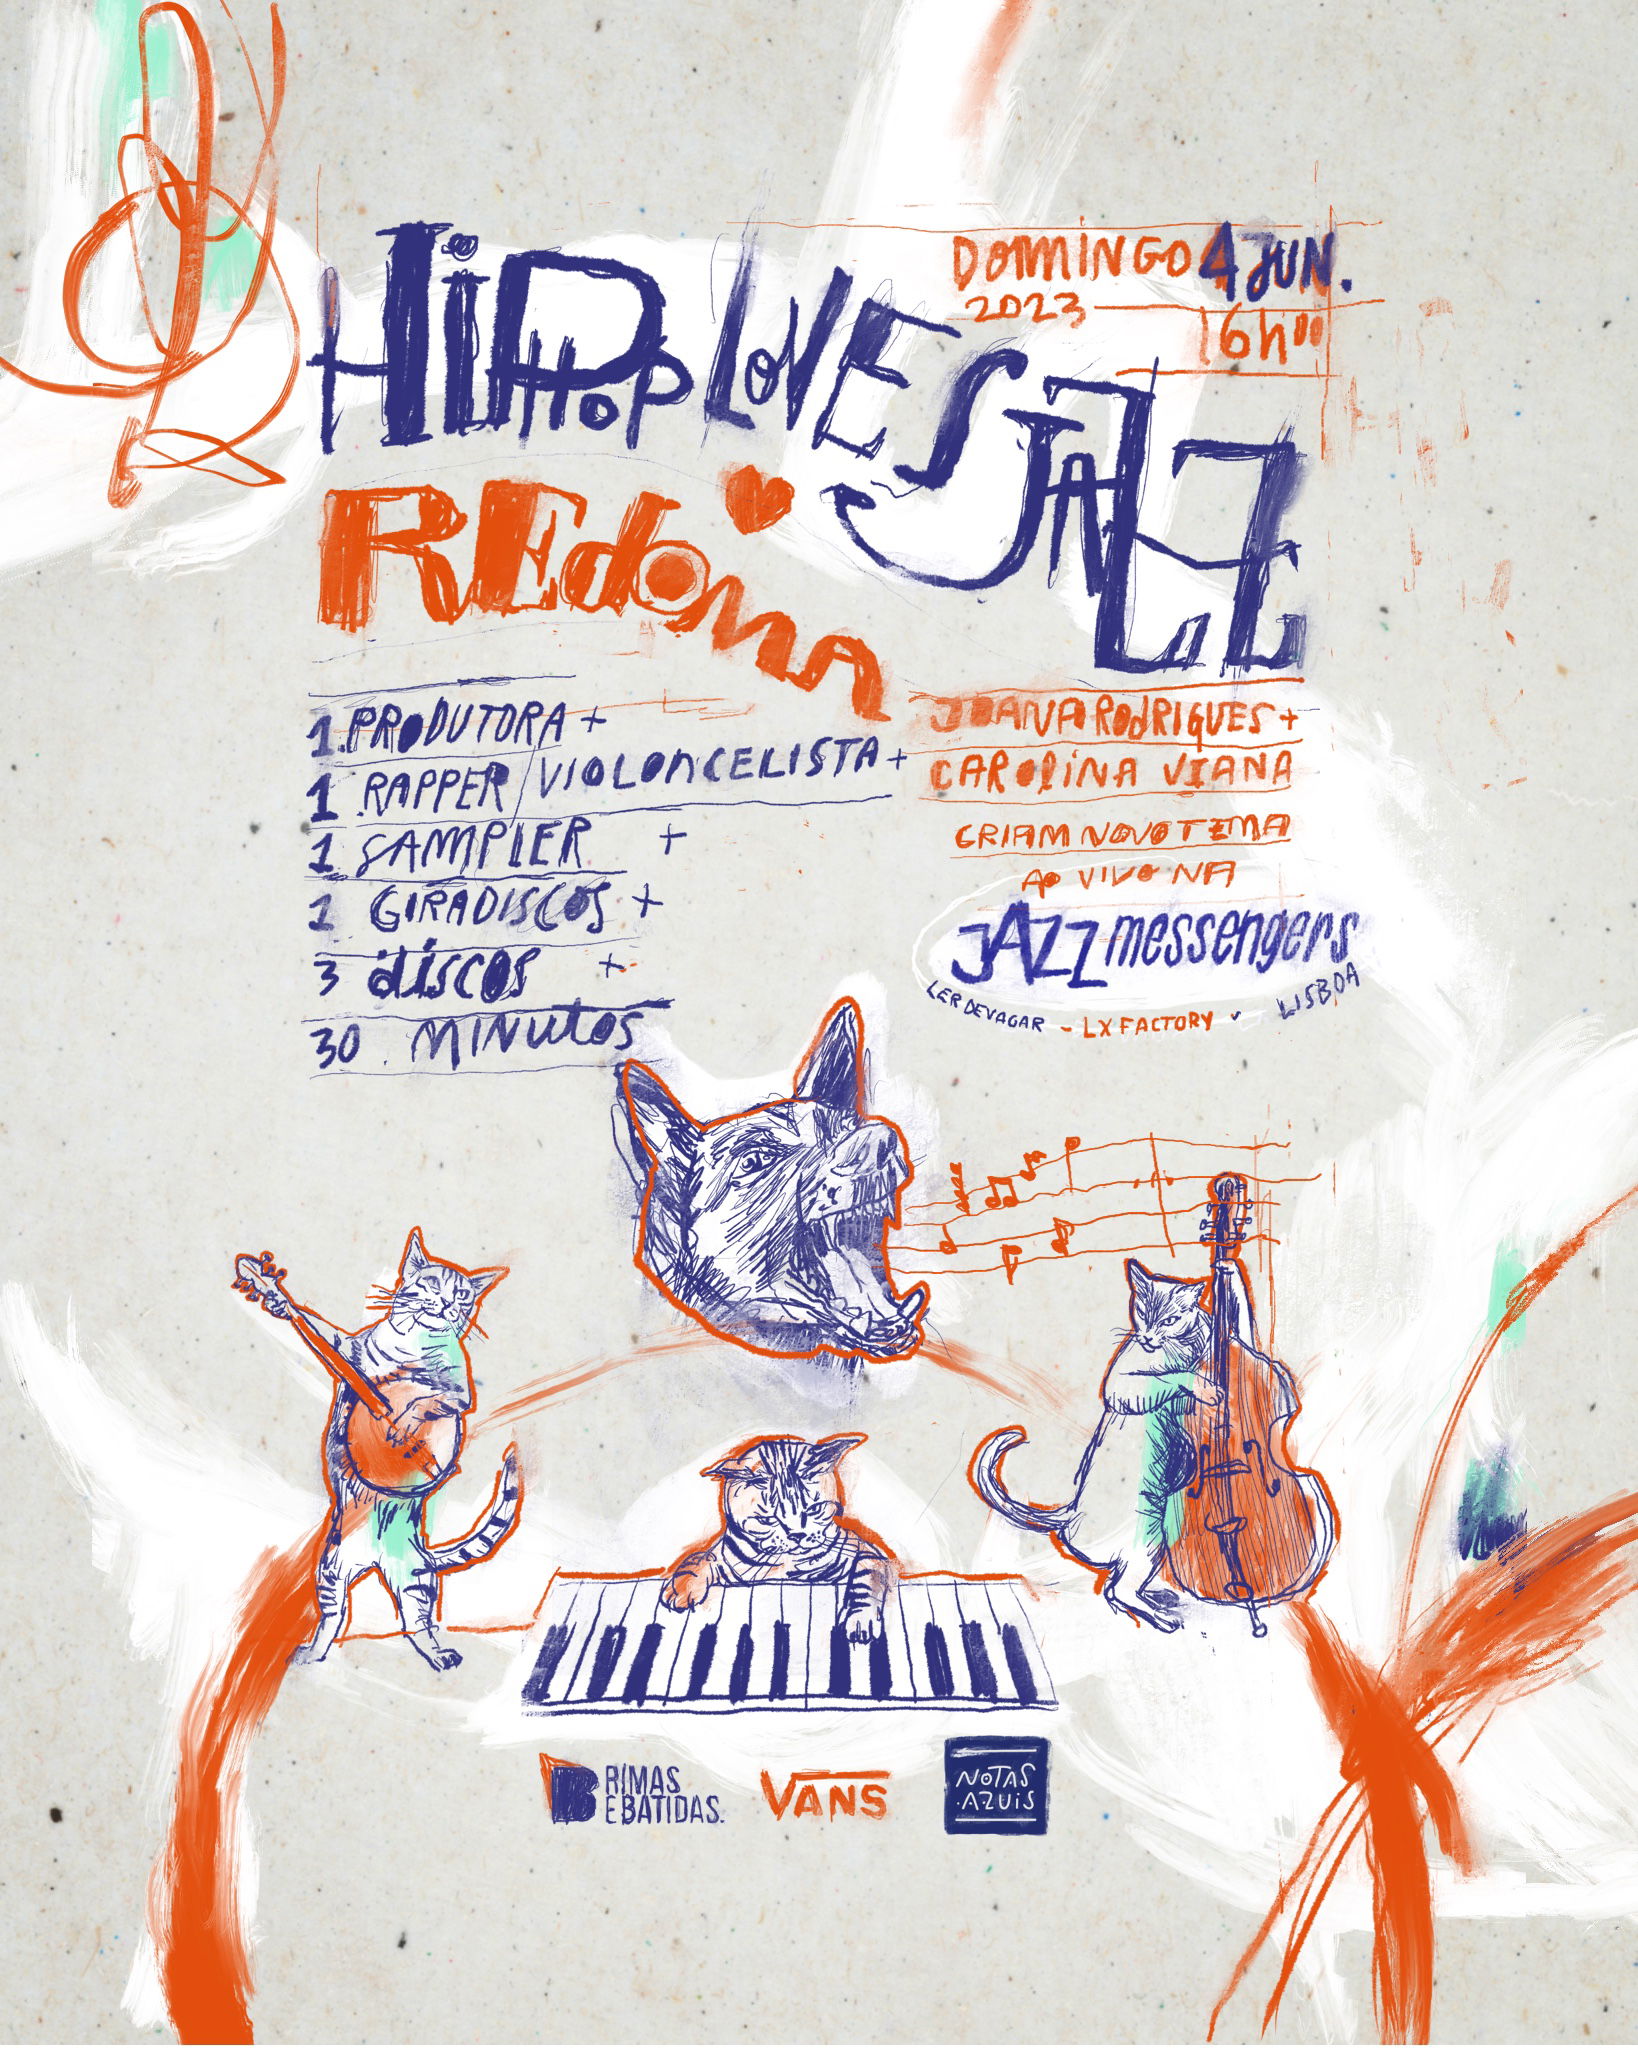 HIPHOP LOVES JAZZ
DOMINGO 4 JUN.
2023
16h00
REdOMA
1. PRODUTORA +
1. RAPPER / VIOLONCELISTA +
1 SAMPLER +
1 GIRADISCOS +
3 discos +
30. MINUtOS
JOANA ROdRIGUES +
CAROLiNA VIANA
CRIAM NOVO TEMA
AO VIVO NA
JAZZ messengers
LER DEVAGAR - LX FACTORY - LISBOA
B RIMAS
E BATIDAS.
VANS
NOTAS
.AZUIS